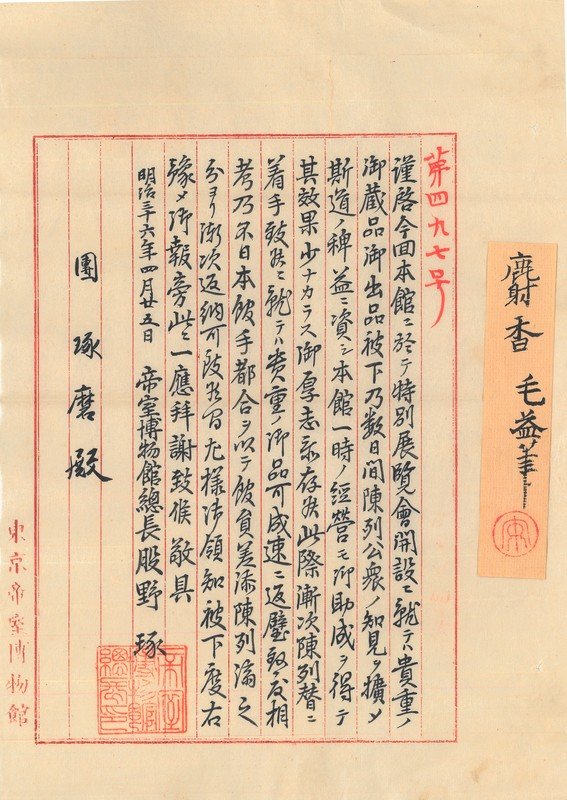 麝香 毛益筆
第四九七号
謹啓今回本館ニ於テ特別展覧會開設ニ就テハ貴重ノ
御蔵品御出品被下乃数日間陳列公衆ノ知見ヲ擴メ
斯道ノ稗益ニ資シ本館一時ノ経營モ御助成ヲ得テ
其效果少ナカラス御厚志忝存候此際漸次陳列替ニ
着手致候ニ就テハ貴重ノ御品可成速ニ返璧致度相
考乃不日本館手都合ヲ以テ館員差添陳列満之
分ヨリ漸次返納可致候間左様御領知被下度右
豫メ御報旁此ニ一應拜謝致候敬具
明治三十六年四月廿五日 帝室博物館總長股野 琢
團 琢磨殿
東京帝室博物館